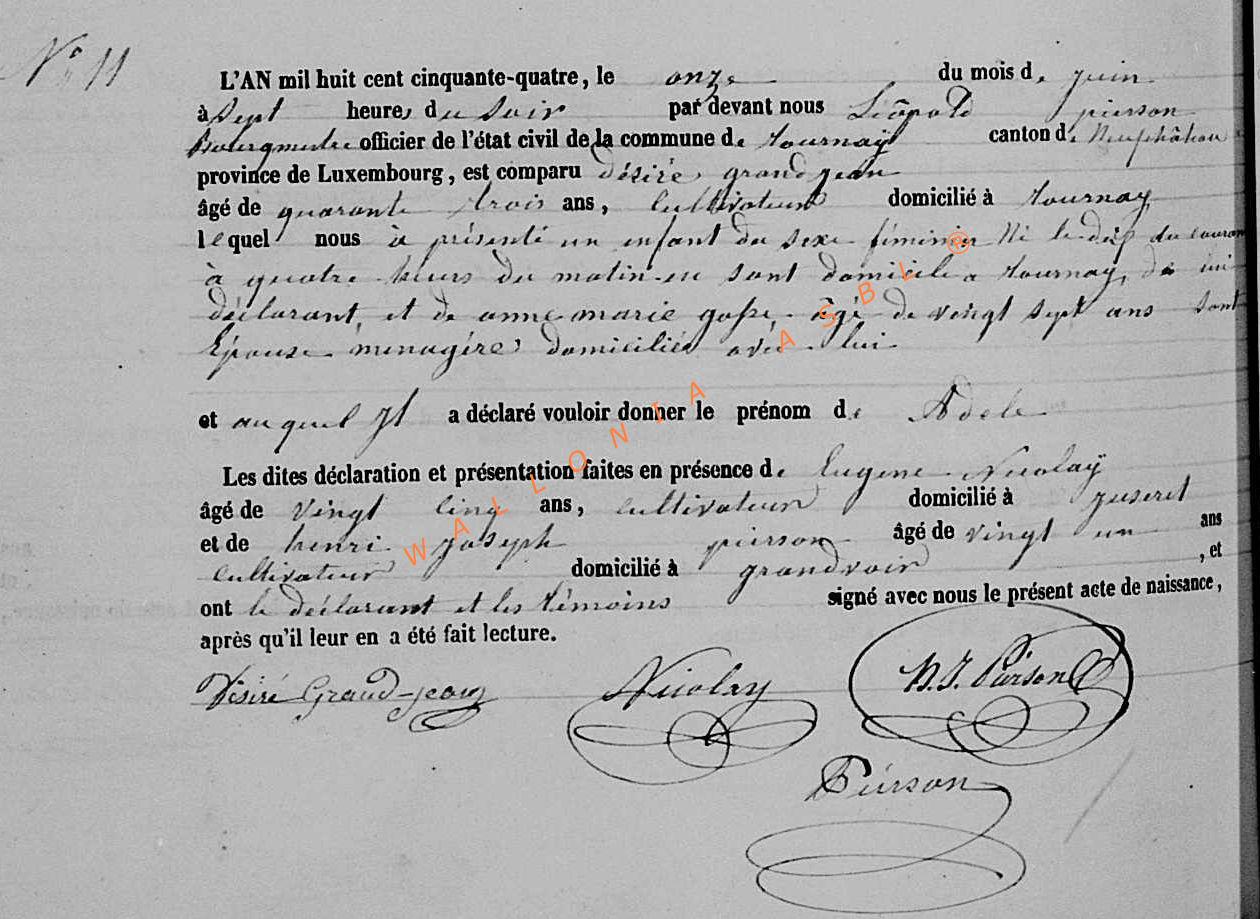 N° 11
L'AN mil huit cent cinquante-quatre, le onze du mois de juin
à sept heures du soir par devant nous Léopold pierson
Bourgmestre officier de l'état civil de la commune de tournay canton de Neufchâteau
province de Luxembourg, est comparu désiré grandjean
âgé de quarante trois ans, cultivateur domicilié à tournay
lequel nous à présenté un enfant du sexe féminin Né le dix du courant
à quatre heurs du matin en sont domicile a tournay, de lui
déclarant, et de anne marie gosse âgé de vingt sept ans sont
Epouse menagére domiciliée avec lui
et auquel il a déclaré vouloir donner le prénom de Adele
Les dites déclaration et présentation faites en présence de Eugene Nicolaÿ
âgé de vingt cinq ans, cultivateur domicilié à juseret
et de henri joseph pierson âgé de vingt un ans
cultivateur domicilié à grandvoir , et
ont le déclarant et les témoins signé avec nous le présent acte de naissance,
après qu'il leur en a été fait lecture.
Désiré Grand-jean Nicolay H. J. Pierson
Pierson
WALLONIA ASBL ®